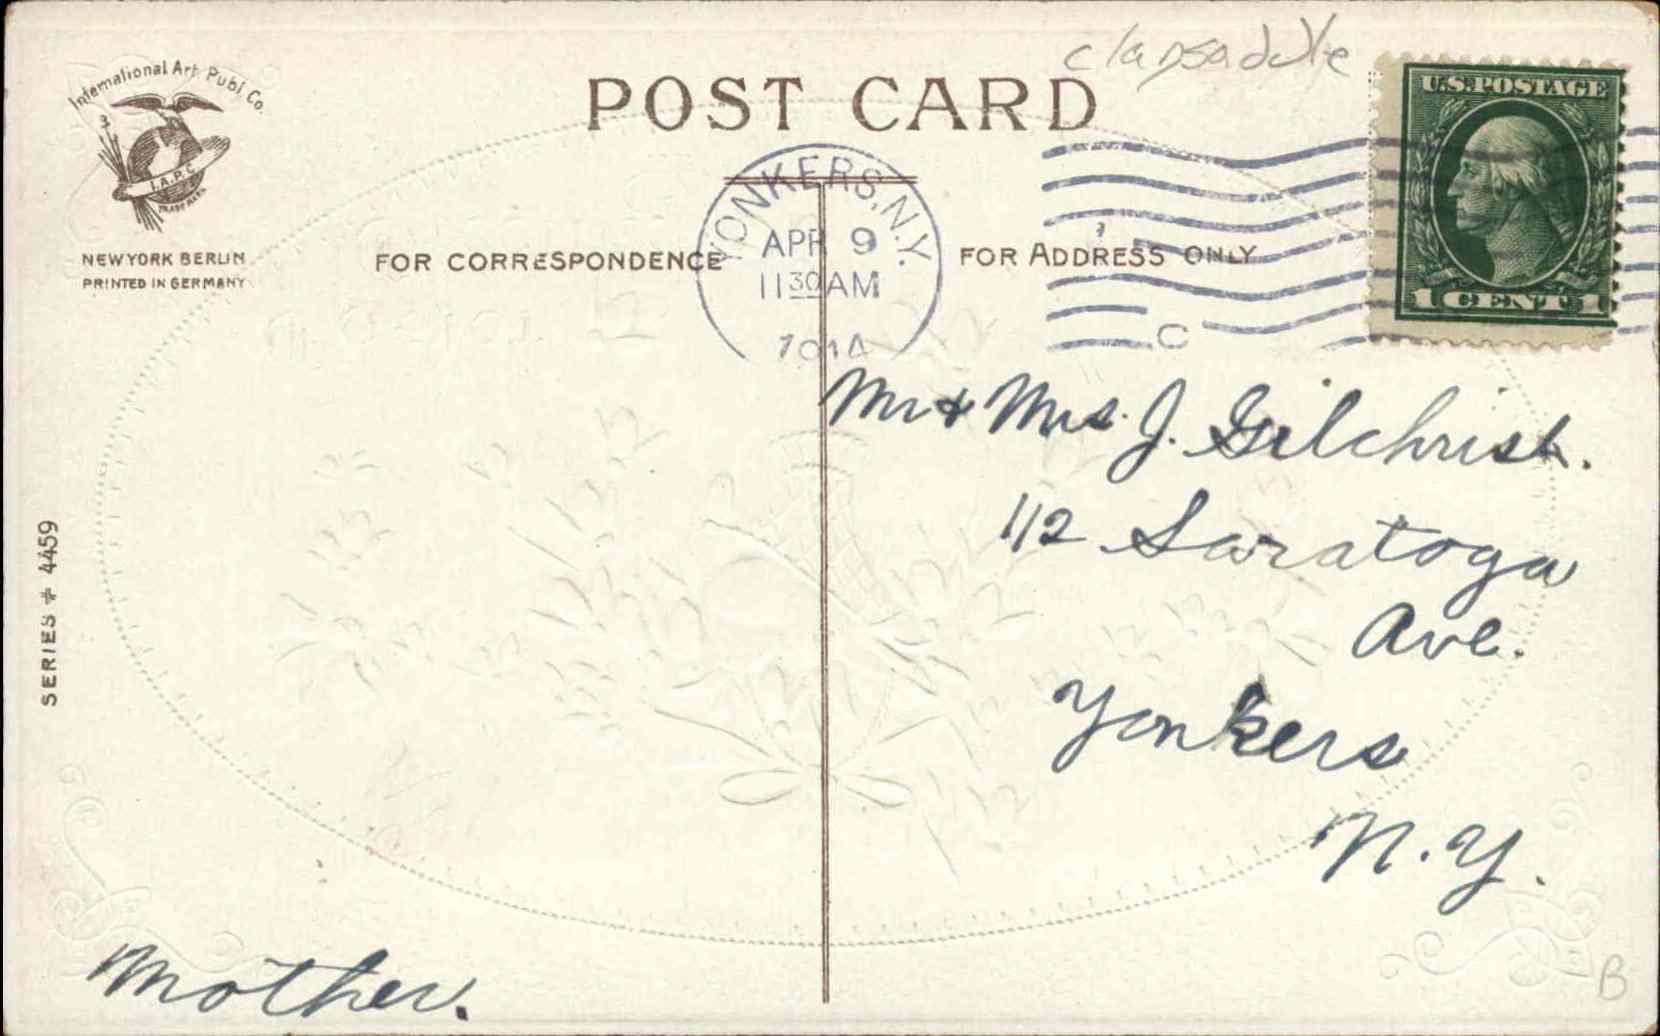 clapsaddle
POST CARD
U.S. POSTAGE
1 CENT 1
International Art Publ. Co.
I.A.P.C.
TRADE MARK
NEW YORK BERLIN
PRINTED IN GERMANY
FOR CORRESPONDENCE
FOR ADDRESS ONLY
YONKERS, N.Y.
APR 9
11 30 AM
1914
C
Mr & Mrs. J. Gilchrist.
112 Saratoga
Ave.
Yonkers
N.Y.
SERIES # 4459
Mother.
B